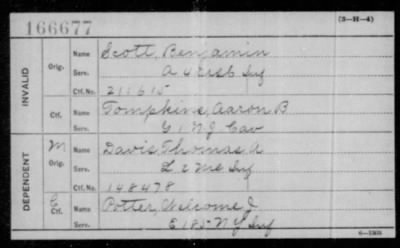 166677
(3-H-4)
INVALID
Orig.
Name Scott, Benjamin
Serv. A 42 Inf
Ctf. No. 211615
Ctf.
Name Tompkins, Aaron B
Serv. G 1 N J Cav
DEPENDENT
M
Orig.
Name Davis, Thomas A
Serv. L 2 Mo Inf
Ctf. No. 148478
C
Ctf.
Name Potter, Welcome J
Serv. E 185 N Y Inf